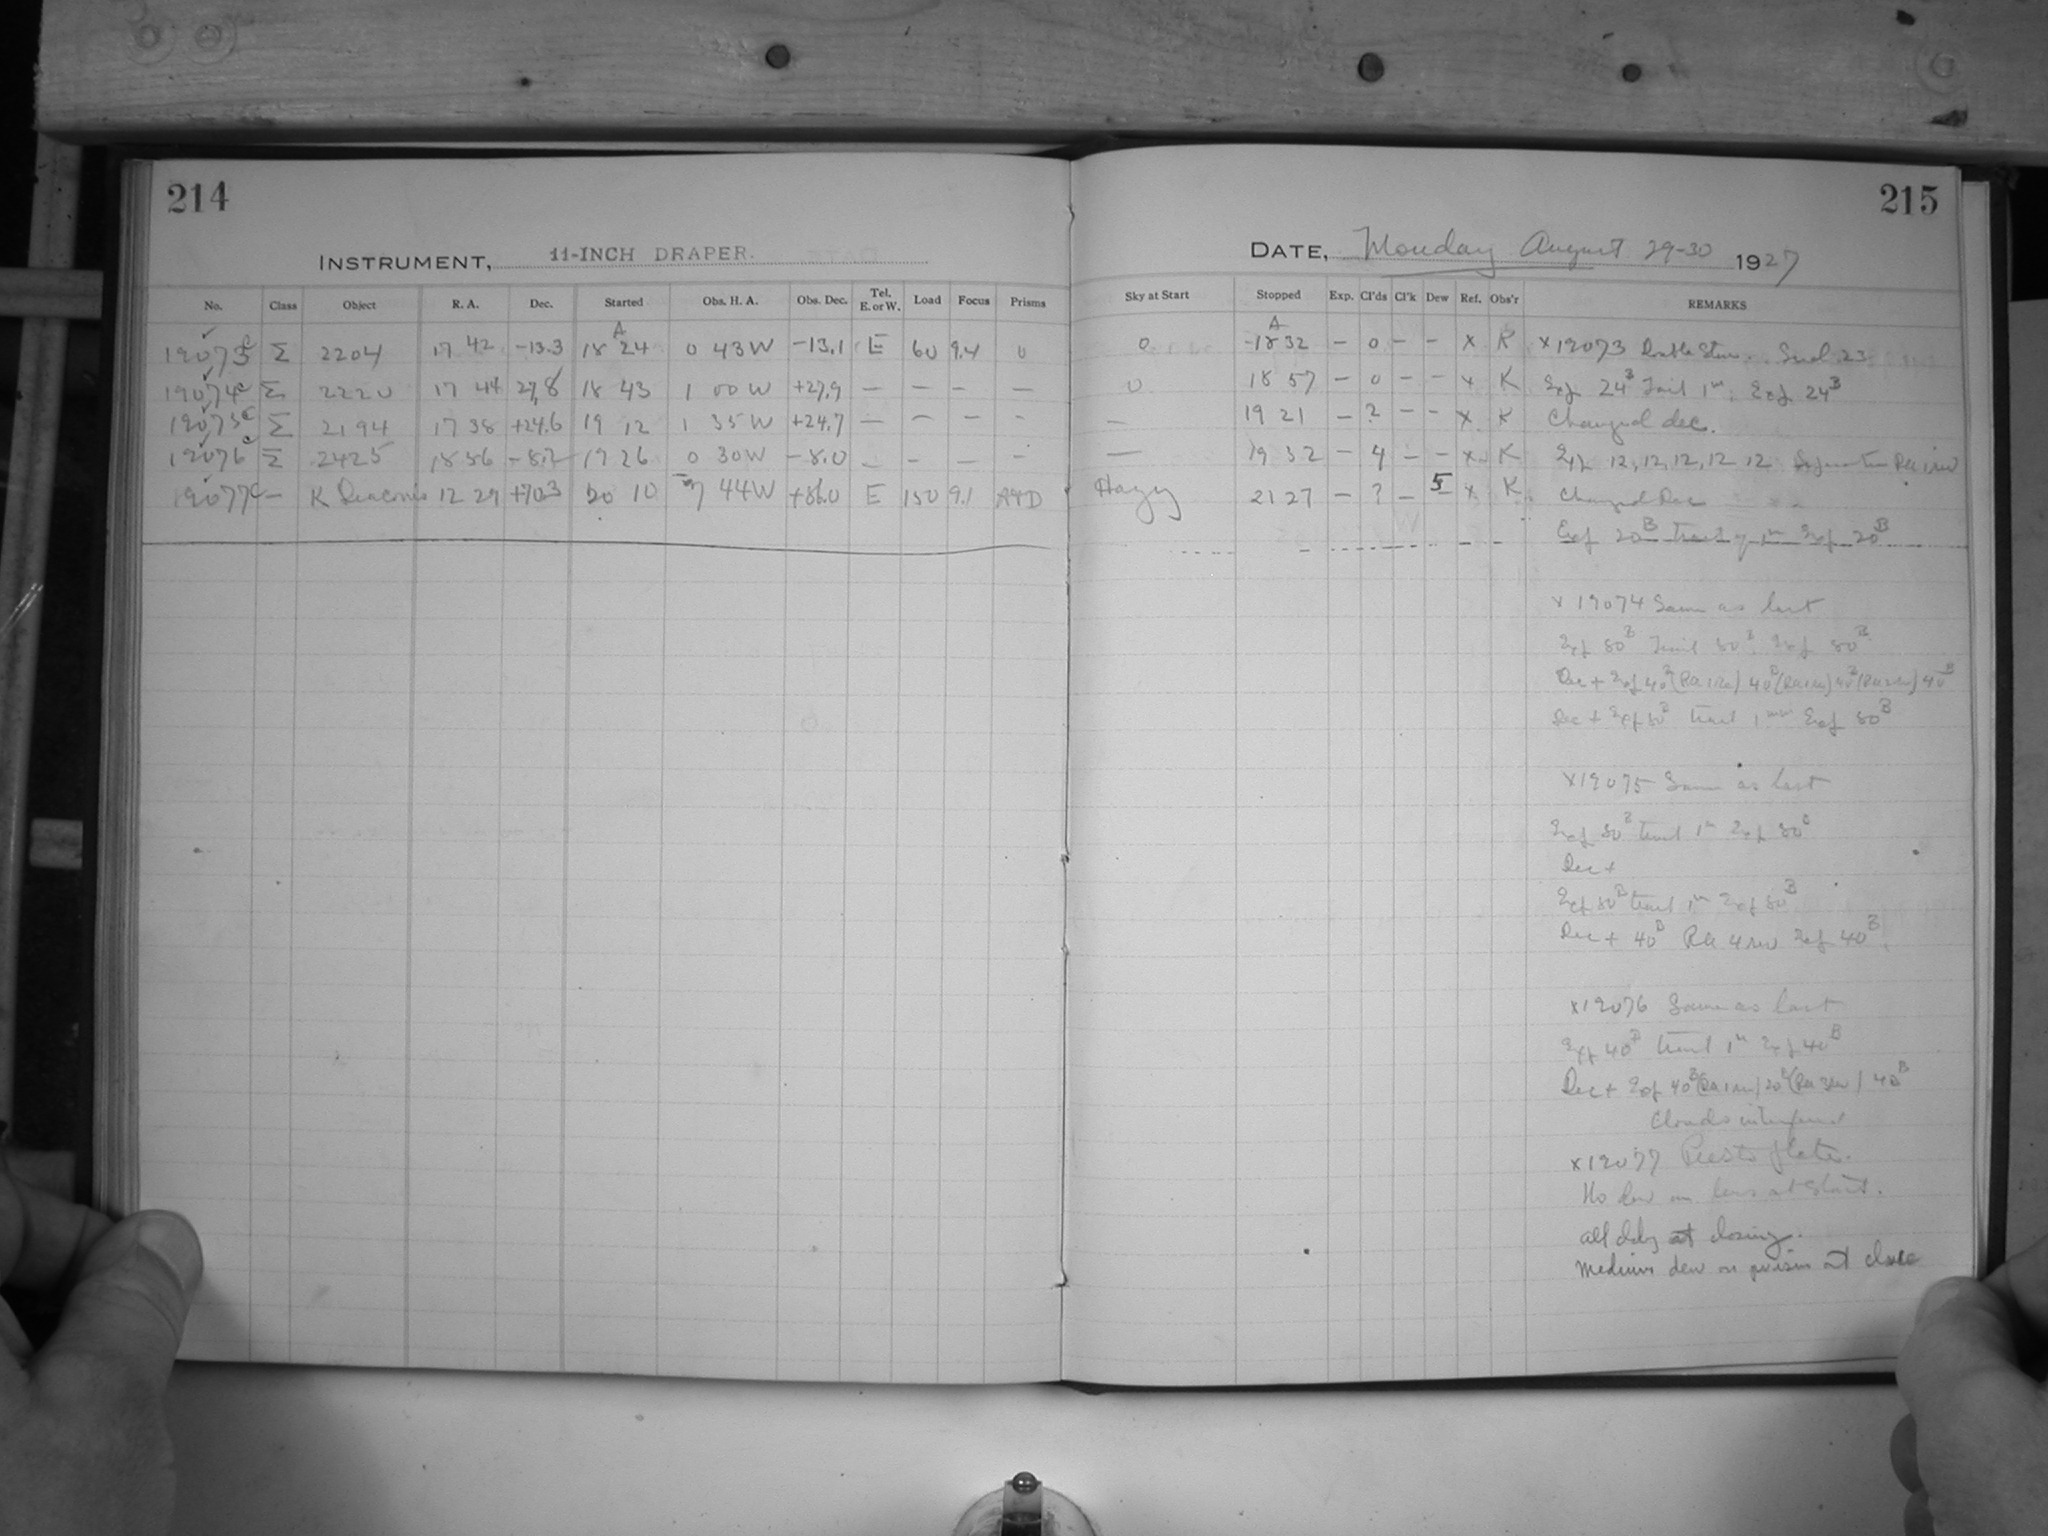 214
INSTRUMENT, 11-INCH DRAPER.
No. Class Object R. A. Dec. Started Obs. H. A. Obs. Dec. Tel. E. or W. Load Focus Prisms
A
19073 c Σ 2204 17 42 -13.3 18 24 0 43 W -13.1 E 60 9.4 0
19074 c Σ 2220 17 44 27.8 18 43 1 00 W +27.9 — — — —
19075 c Σ 2194 17 38 +24.6 19 12 1 35 W +24.7 — — — -
19076 c Σ 2425 18 56 -8.2 19 26 0 30 W -8.0 — - - -
19077 c - K Draconis 12 29 +70.3 20 10 7 44 W +86.0 E 150 9.1
215
DATE, Monday August 29-30 1927
Sky at Start Stopped Exp. Cl'ds Cl'k Dew Ref. Obs'r REMARKS
A
0 18 32 - 0 - - x K x 19073 Double Stars. 23
0 18 57 - 0 - - x K Exp 24B Trail 1m. Exp 24B
— 19 21 - ? - - x K Changed dec.
— 19 32 - 4 - - x K Exp 12, 12, 12, 12 12
Hazy 21 27 - ? - 5 x K Changed Dec
Exp 20B trail 1m Exp 20B
x 19074 Same as last
Exp 80B Trail 80B Exp 80B
Dec + Exp 40B
Dec + Exp 80B trail 1 Exp 80B
x 19075 Same as last
Exp 80B trail 1m Exp 80B
Dec +
Exp 80B trail 1m Exp 80B
Dec + 40B RA 4 rev Exp 40B.
x 19076 Same as last
Exp 40B trail 1m Exp 40B
Dec + Exp 40B (RA 1 rev) 20B (RA 3 rev) 40B
Clouds interfered
x 19077 Presto plate.
No dew on lens at start.
all cldy at closing.
Medium dew on prism at close